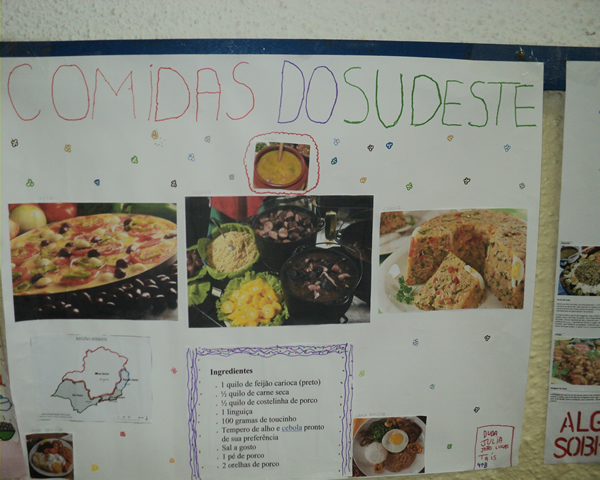 COMIDAS DO SUDESTE
Ingredientes
. 1 quilo de feijão carioca (preto)
. ½ quilo de carne seca
. ½ quilo de costelinha de porco
. 1 linguiça
. 100 gramas de toucinho
. Tempero de alho e cebola pronto
de sua preferência
. Sal a gosto
. 1 pé de porco
. 2 orelhas de porco
DUDA
JULIA
JOÃO
TAIS
ALG
SOBR